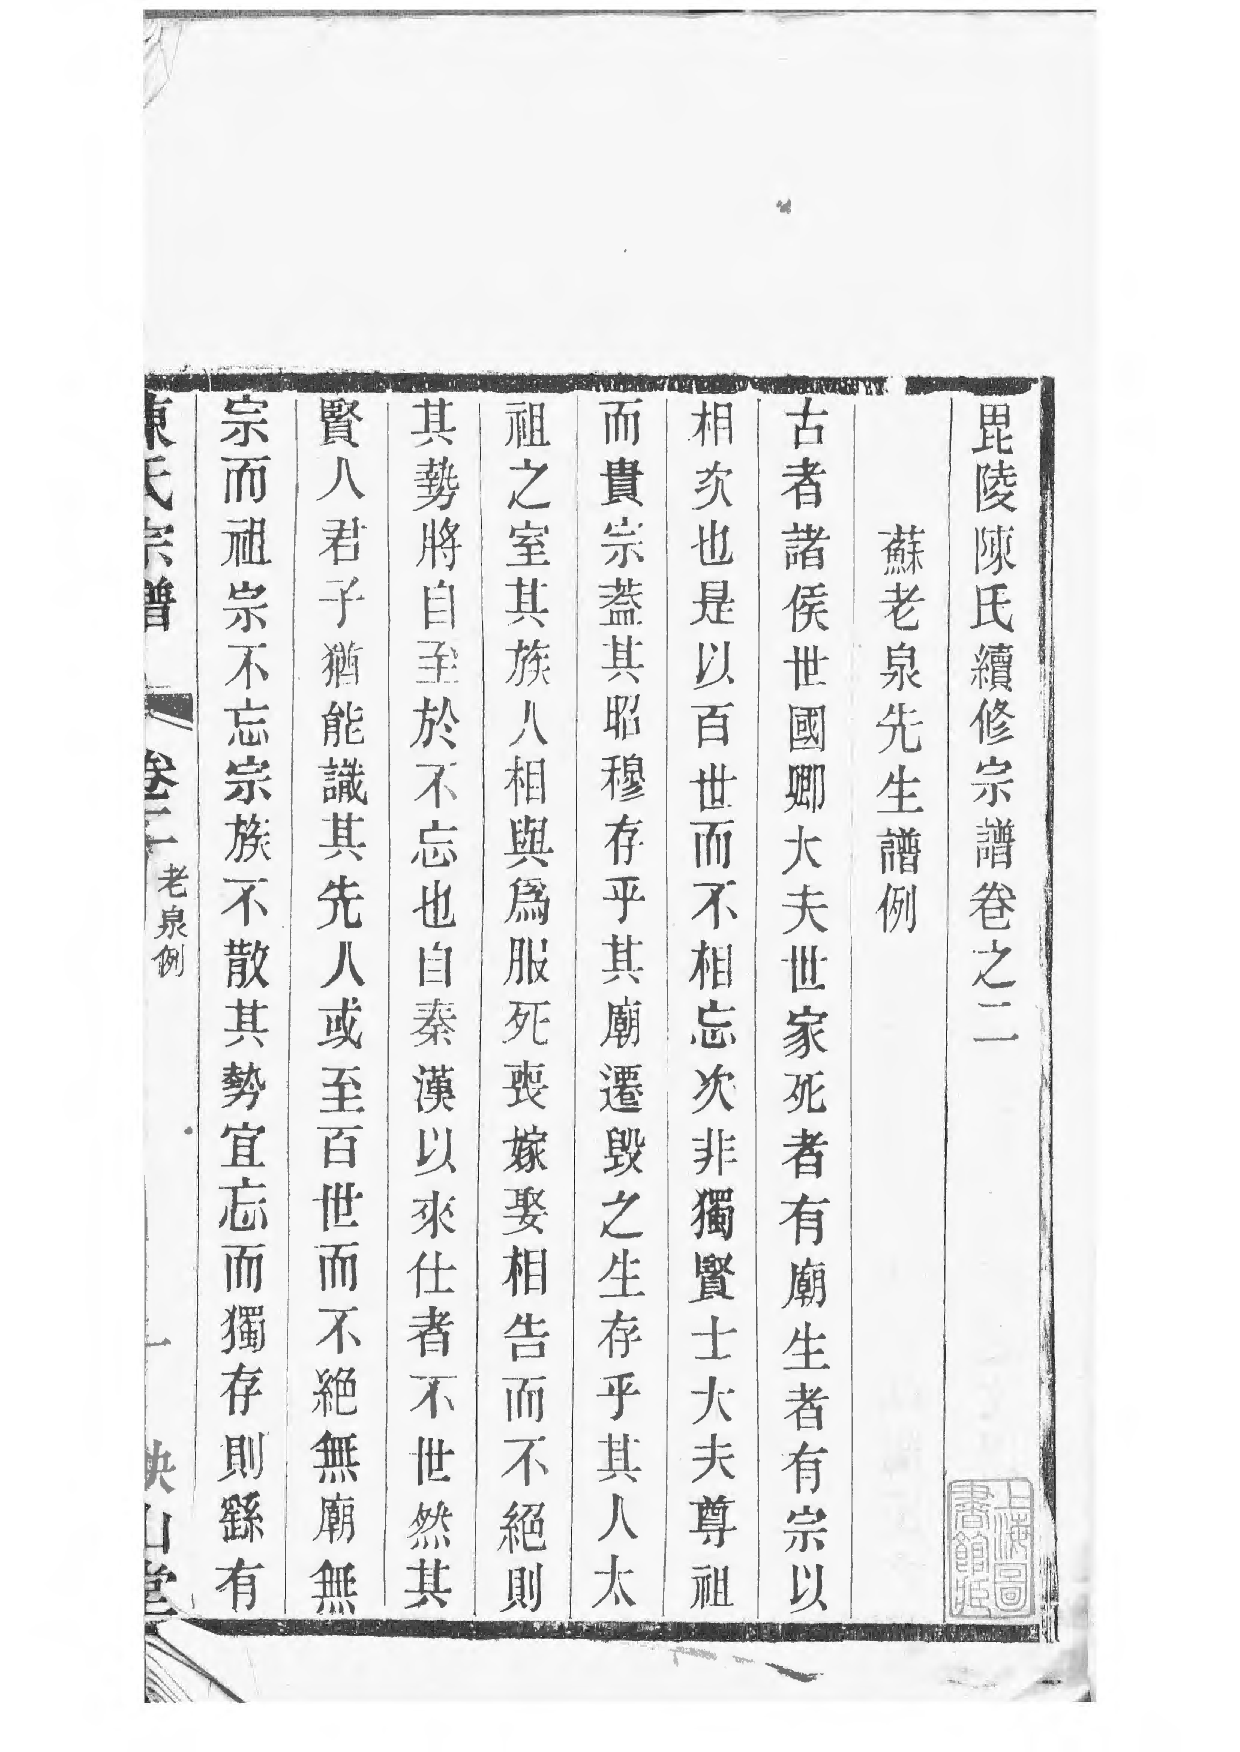 毘陵陳氏續修宗譜卷之二
蘇老泉先生譜例
古者諸侯世國卿大夫世家死者有廟生者有宗以
相次也是以百世而不相忘次非獨賢士大夫尊祖
而貴宗蓋其昭穆存乎其廟遷毀之生存乎其人太
祖之室其族人相與爲服死喪嫁娶相告而不絕則
其勢將自至於不忘也自秦漢以來仕者不世然其
賢人君子猶能識其先人或至百世而不絕無廟無
宗而祖宗不忘宗族不散其勢宜忘而獨存則繇有
陳氏宗譜 卷二 老泉例 一 映山堂
上海圖書館藏